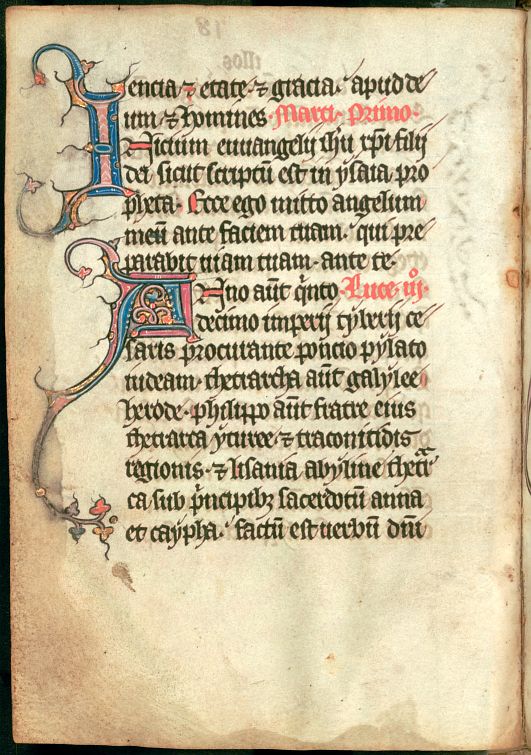 iencia ⁊ etate ⁊ gracia apud de
um ⁊ homines. Marci primo.
Inicium euuangelij ihū xpī filij
dei sicut scriptū est in ysaia pro
pheta. Ecce ego mitto angelum
meū ante faciem tuam. qui pre
parabit uiam tuam ante te.
Anno aūt qͥnto. Luce iijͦ.
decimo imperij tyberij ce
saris procurante poncio pylato
iudeam. thetrarcha aūt galylee
herode. philippo aūt fratre eius
thetrarca yturee. ⁊ traconitidis
regionis. ⁊ lisania abyline thetͬᵃ
ca sub pͥncipibꝫ sacerdotū anna
et caypha. factū est uerbū dnī